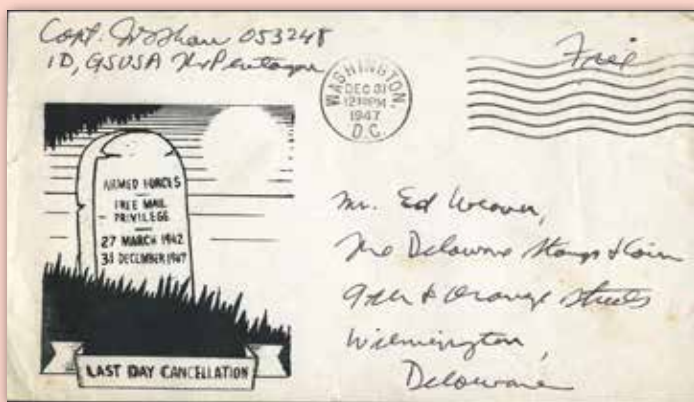 Capt. 053248
ID, GSUSA The Pentagon
Free
WASHINGTON,
DEC 31
12 PM
1947
D.C.
ARMED FORCES
FREE MAIL
PRIVILEGE
27 MARCH 1942
31 DECEMBER 1947
LAST DAY CANCELLATION
Mr. Ed Weaver,
The Delaware Stamp & Coin
9th & Orange Streets
Wilmington,
Delaware